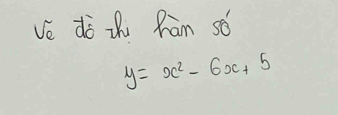 Vẽ đồ thị hàm số
y = x² - 6x + 5